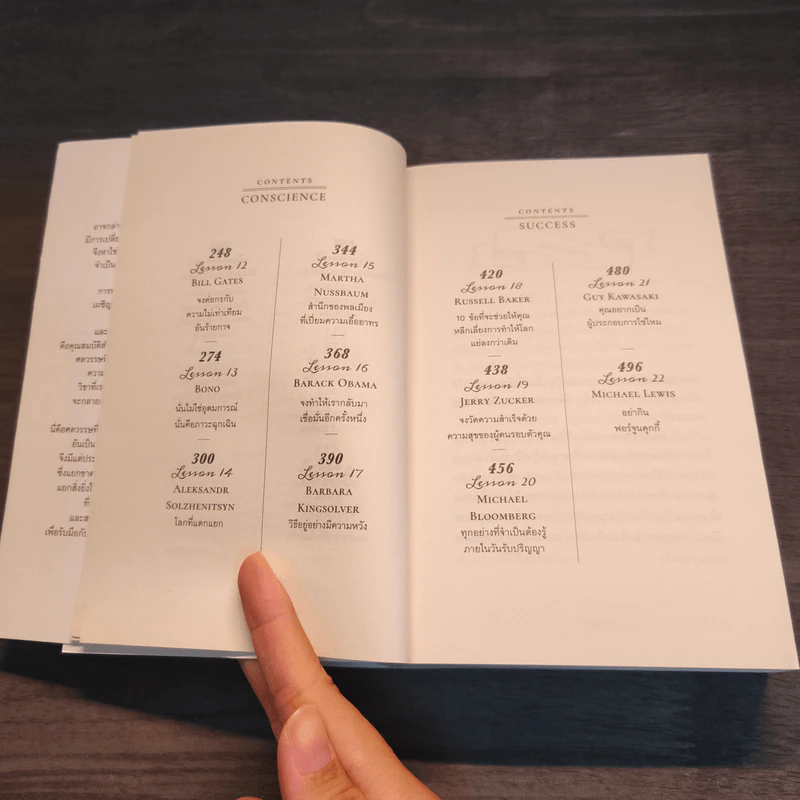 อาจกล่า
มีการเปลี่ย
จึงหาใช่
จำเป็น
การท
เผชิญ
และ
คือคุณสมบัติส
ศตวรรษที่
ความ
วิชาที่เร
จะกลาย
นี่คือศตวรรษที่
อันเป็น
จึงมีแต่ประ
ซึ่งแยกขาด
แยกสิ่งยิ่งใ
ที่
และส
เพื่อรับมือกับ
CONTENTS
CONSCIENCE
248
Lesson 12
BILL GATES
จงต่อกรกับ
ความไม่เท่าเทียม
อันร้ายกาจ
274
Lesson 13
BONO
นั่นไม่ใช่อุดมการณ์
นั่นคือภาวะฉุกเฉิน
300
Lesson 14
ALEKSANDR
SOLZHENITSYN
โลกที่แตกแยก
344
Lesson 15
MARTHA
NUSSBAUM
สำนึกของพลเมือง
ที่เปี่ยมความเอื้ออาทร
368
Lesson 16
BARACK OBAMA
จงทำให้เรากลับมา
เชื่อมั่นอีกครั้งหนึ่ง
390
Lesson 17
BARBARA
KINGSOLVER
วิธีอยู่อย่างมีความหวัง
CONTENTS
SUCCESS
420
Lesson 18
RUSSELL BAKER
10 ข้อที่จะช่วยให้คุณ
หลีกเลี่ยงการทำให้โลก
แย่ลงกว่าเดิม
438
Lesson 19
JERRY ZUCKER
จงวัดความสำเร็จด้วย
ความสุขของผู้คนรอบตัวคุณ
456
Lesson 20
MICHAEL
BLOOMBERG
ทุกอย่างที่จำเป็นต้องรู้
ภายในวันรับปริญญา
480
Lesson 21
GUY KAWASAKI
คุณอยากเป็น
ผู้ประกอบการใช่ไหม
496
Lesson 22
MICHAEL LEWIS
อย่ากิน
ฟอร์จูนคุกกี้